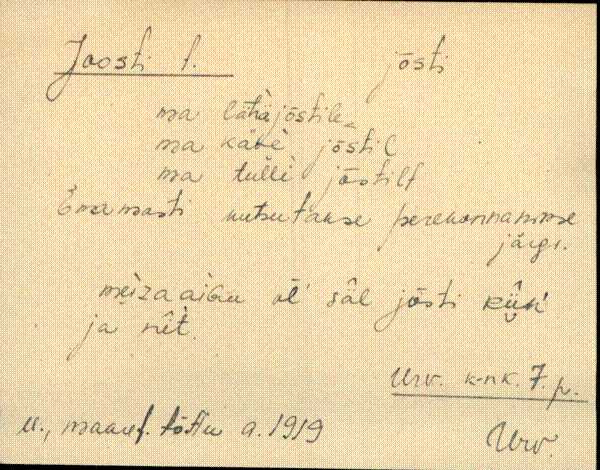 Joosti t. jōsti
ma lähä jōstile
ma käve jōstil
ma tulli jōstilt
Enamasti kutsutakse perekonnanime
järgi.
meizaaigu ol' säl jōsti küü̬k'
ja nīt.
Urv. k-nk. 7. p.
u., maauf. tõttu a. 1919
Urv.